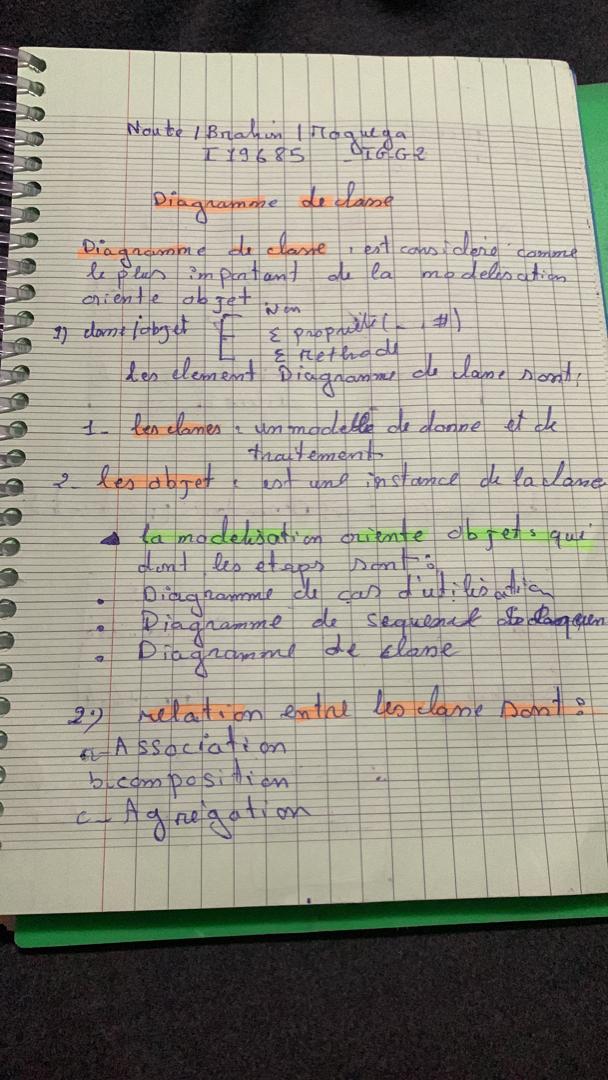 Noute / Brahim / Moguega
I 19685 IGG2
Diagramme de classe
Diagramme de classe, est considere comme
le plus important de la modelisation
oriente objet
1) classe/objet [ Nom
Σ propriété (-, #)
Σ Methode
les element Diagramme de classe sont:
1- les classes: un modelle de donne et de
traitement
2- les objet: est une instance de la classe
la modelisation oriente objets qui
dont les etaps sont:
• Diagramme de cas d'utilisation
• Diagramme de sequence
• Diagramme de classe
2) relation entre les classe sont:
a- Association
b. composition
c- Agrégation